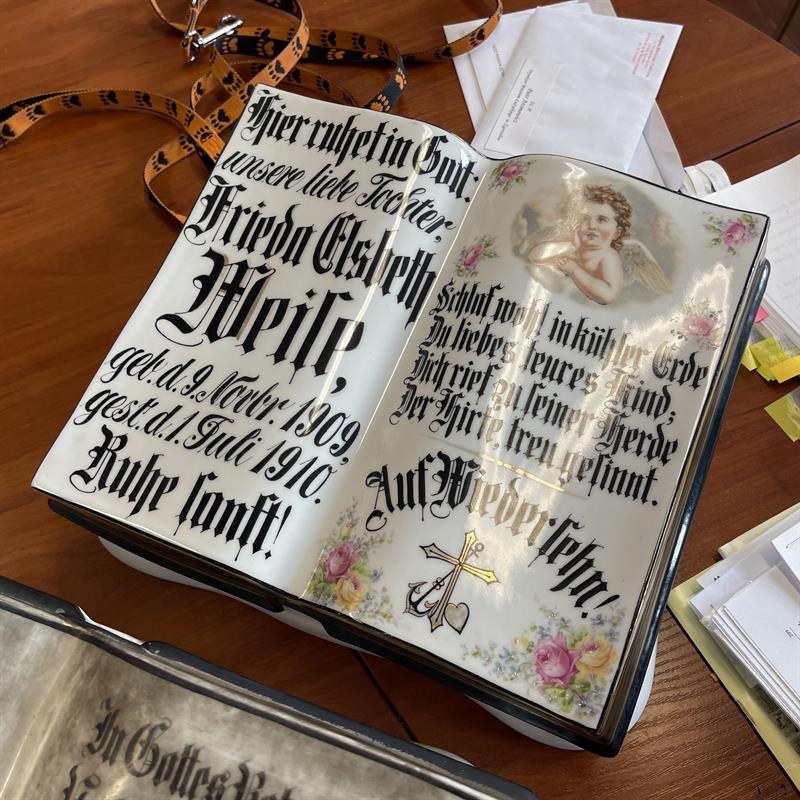 Hier ruhet in Gott:
unsere liebe Tochter,
Frieda Elsbeth
Weise,
geb. d. 9. Novbr. 1909,
gest. d. 1. Juli 1910.
Ruhe sanft!
Schlaf wohl in kühler Erde
Du liebes, teures Kind;
Dich rief zu seiner Herde
Der Hirte, treu gesinnt.
Auf Wiedersehn!
In Gottes